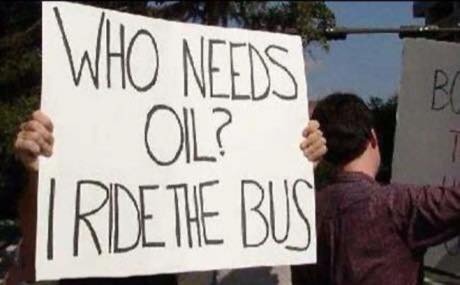 WHO NEEDS
OIL?
I RIDE THE BUS